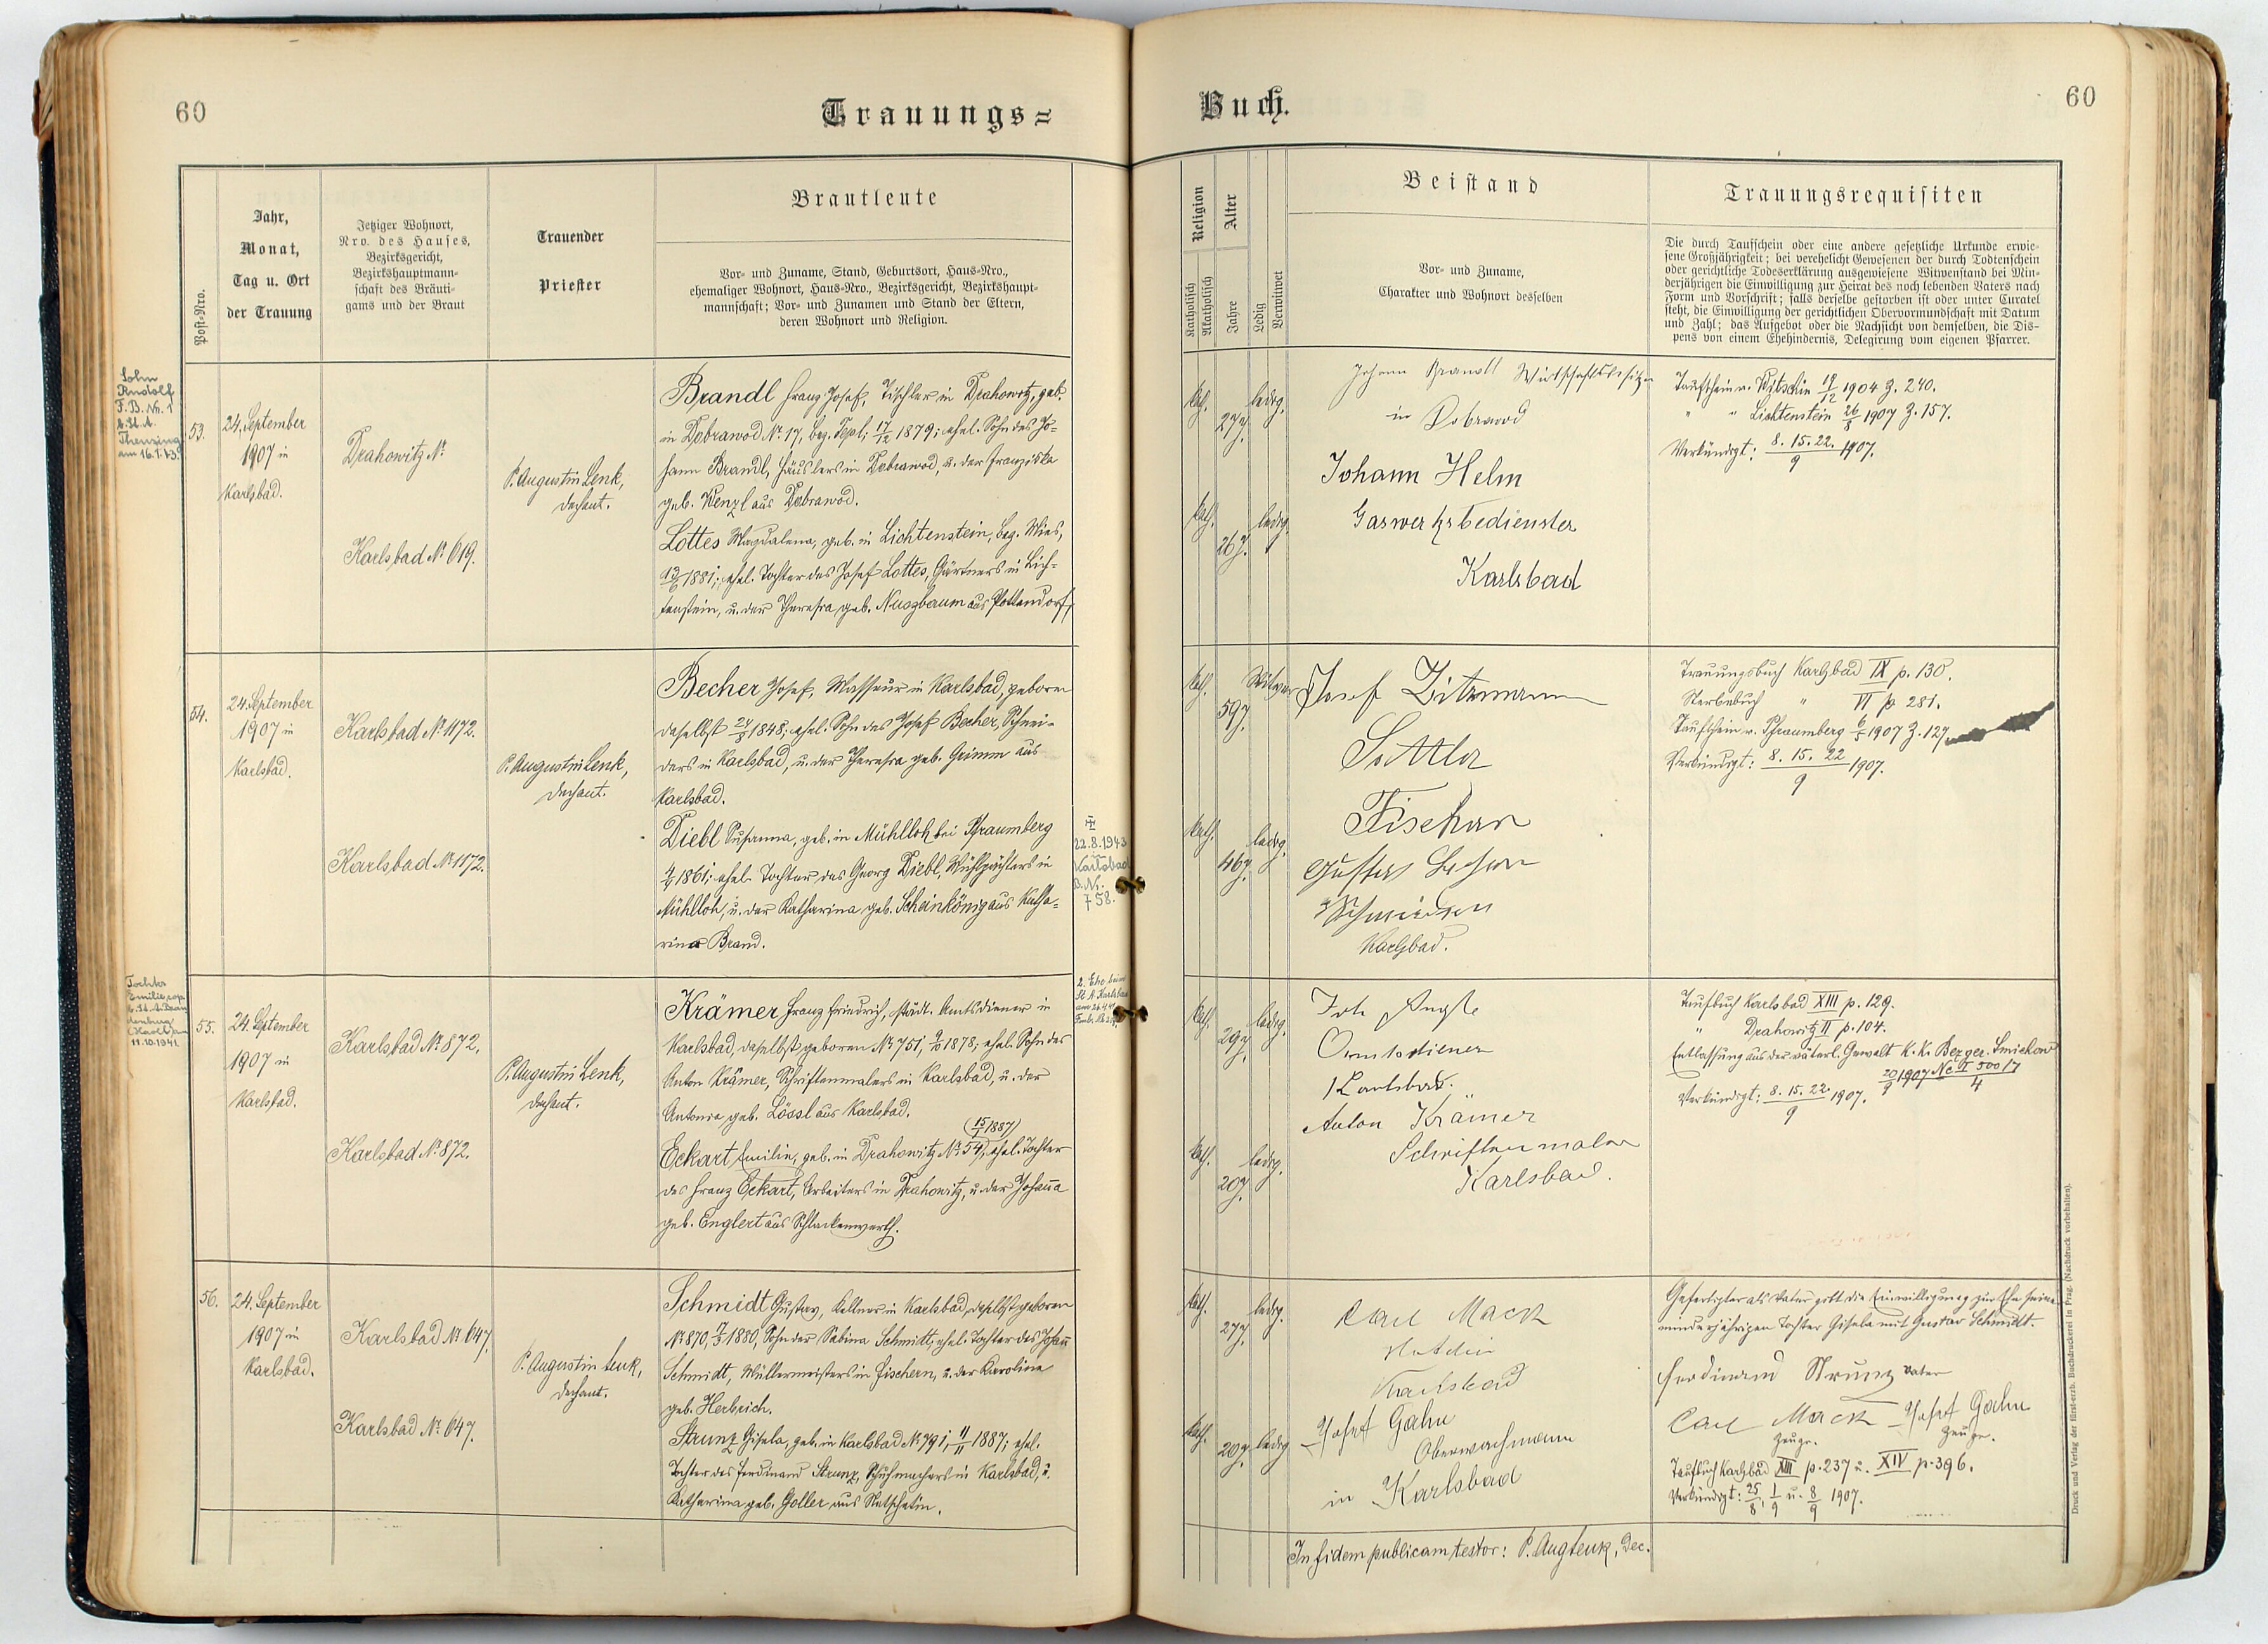 60
Trauungs=
Post-Nro.
Jahr,
Monat,
Tag u. Ort
der Trauung
Jetziger Wohnort,
Nro. des Hauses,
Bezirksgericht,
Bezirkshauptmann-
schaft des Bräuti-
gams und der Braut
Trauender
Priester
Brautleute
Vor- und Zuname, Stand, Geburtsort, Haus-Nro.,
ehemaliger Wohnort, Haus-Nro., Bezirksgericht, Bezirkshaupt-
mannschaft; Vor- und Zunamen und Stand der Eltern,
deren Wohnort und Religion.
Sohn
Rudolf
F. B. Nr. 1
b. St. A.
Theusing
am 16.1.43.
53.
24. September
1907 in
Karlsbad.
Drahowitz №
Karlsbad № 619.
P. Augustin Lenk,
Dechant.
Brandl Franz Josef, Tischler in Drahowitz, geb.
in Dobrawod № 17, bez. Tepl; 17/12 1879; ehel. Sohn des Jo=
hann Brandl, Häuslers in Dobrawod, u. der Franziska
geb. Wenzl aus Dobrawod.
Lottes Magdalena, geb. in Lichtenstein, bez. Mies,
1881; ehel. Tochter des Josef Lottes, Gärtners in Lich=
tenstein, u. der Theresia geb. Nuszbaum aus Pollendorf,
54.
24. September
1907 in
Karlsbad.
Karlsbad № 1172.
Karlsbad № 1172.
P. Augustin Lenk,
Dechant.
Becher Josef, Masseur in Karlsbad, geboren
daselbst 1848, ehel. Sohn des Josef Becher, Schnei=
ders in Karlsbad, u. der Theresia geb. Grimm aus
Karlsbad.
Diebl Susanna, geb. in Mühlloh bei Pfraumberg
1861; ehel. Tochter des Georg Diebl, Mühlpächters in
Mühlloh, u. der Katharina geb. Scheinkönig aus Katha=
rina Brand.
22.8.1943
Karlsbad
758.
Tochter
Emilie
11.10.1941
55.
24. September
1907 in
Karlsbad.
Karlsbad № 872.
Karlsbad № 872.
P. Augustin Lenk,
Dechant.
Krämer Franz Friedrich, städt. Amtsdiener in
Karlsbad, daselbst geboren № 751, 1878; ehel. Sohn des
Anton Krämer, Schriftenmalers in Karlsbad, u. der
Antonia geb. Lössl aus Karlsbad.
Eckart Emilie, geb. in Drahowitz № 54, (15/1 1887) ehel. Tochter
des Franz Eckart, Arbeiters in Drahowitz, u. der Johanna
geb. Englert aus Schlackenwerth.
2. Ehe beim
St. A. Karlsbad
56.
24. September
1907 in
Karlsbad.
Karlsbad № 647.
Karlsbad № 647.
P. Augustin Lenk,
Dechant.
Schmidt Gustav, Kellner in Karlsbad, daselbst geboren
№ 870, 1880, Sohn der Sabina Schmidt, ehel. Tochter des Johann
Schmidt, Müllermeisters in Fischern, u. der Karolina
geb. Herbrich.
Strunz Gisela, geb. in Karlsbad № 791, 11/11 1887; ehel.
Tochter des Ferdinand Strunz, Schuhmachers in Karlsbad, u.
Katharina geb. Goller aus Netschetin.
Buch.
60
Religion
Katholisch
Akatholisch
Alter
Jahre
Ledig
Verwitwet
Beistand
Vor- und Zuname,
Charakter und Wohnort desselben
Trauungsrequisiten
Die durch Taufschein oder eine andere gesetzliche Urkunde erwie-
sene Großjährigkeit; bei verehelicht Gewesenen der durch Todtenschein
oder gerichtliche Todeserklärung ausgewiesene Witwenstand bei Min-
derjährigen die Einwilligung zur Heirat des noch lebenden Vaters nach
Form und Vorschrift; falls derselbe gestorben ist oder unter Curatel
steht, die Einwilligung der gerichtlichen Obervormundschaft mit Datum
und Zahl; das Aufgebot oder die Nachsicht von demselben, die Dis-
pens von einem Ehehindernis, Delegirung vom eigenen Pfarrer.
kath.
27 J.
ledig.
kath.
26 J.
ledig.
Johann Brandl Wirtschaftsbesitzer
in Dobrawod
Johann Helm
Gaswerksbedienster
Karlsbad
Taufschein v. 19/12 1904 Z. 240.
" " Lichtenstein 26/8 1907 Z. 157.
Verkündigt: 8. 15. 22./9 1907.
kath.
59 J.
Witwer
kath.
46 J.
ledig.
Josef Zitzmann
Sattler
Fischern
Gustav Becher
Schneider
Karlsbad.
Trauungsbuch Karlsbad IX p. 130.
Sterbebuch " VI p. 281.
Taufschein v. Pfraumberg 1907 Z. 127
Verkündigt: 8. 15. 22/9 1907.
kath.
29 J.
ledig.
kath.
20 J.
ledig.
Joh
Amtsdiener
Karlsbad.
Anton Krämer
Schriftenmaler
Karlsbad.
Taufbuch Karlsbad XIII p. 129.
" Drahowitz II p. 104.
Entlassung aus der väterl. Gewalt K. K. Bezger. Smichow
20/9 1907 Nc I 500/7 4
Verkündigt: 8. 15. 22./9 1907.
kath.
27 J.
ledig.
kath.
20 J.
ledig
Carl Mack
Karlsbad
Josef Gahn
Oberwachmann
in Karlsbad
Gefertigter als Vater gibt die Einwilligung zur Ehe seiner
minderjährigen Tochter Gisela mit Gustav Schmidt.
Ferdinand Strunz Vater
Carl Mack Josef Gahn
Zeuge. Zeuge.
Taufbuch Karlsbad XIII p. 237 u. XIV p. 396.
Verkündigt: 25/8, 1/9 u. 8/9 1907.
In fidem publicam testor: P. Aug Lenk, Dec.
Druck und Verlag der fürst-erzb. Buchdruckerei in Prag. (Nachdruck vorbehalten).